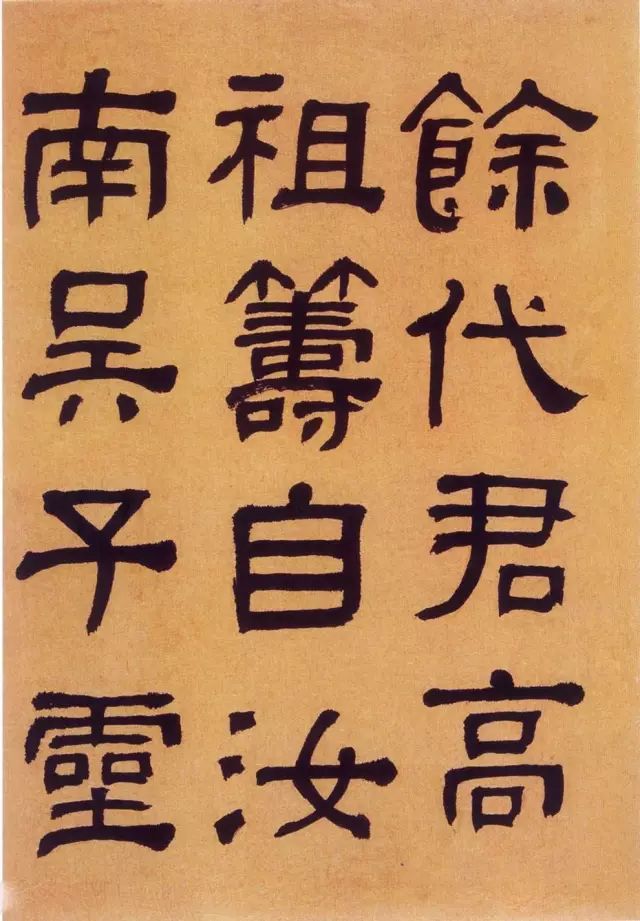 餘代君高
祖籌自汝
南吴子靈